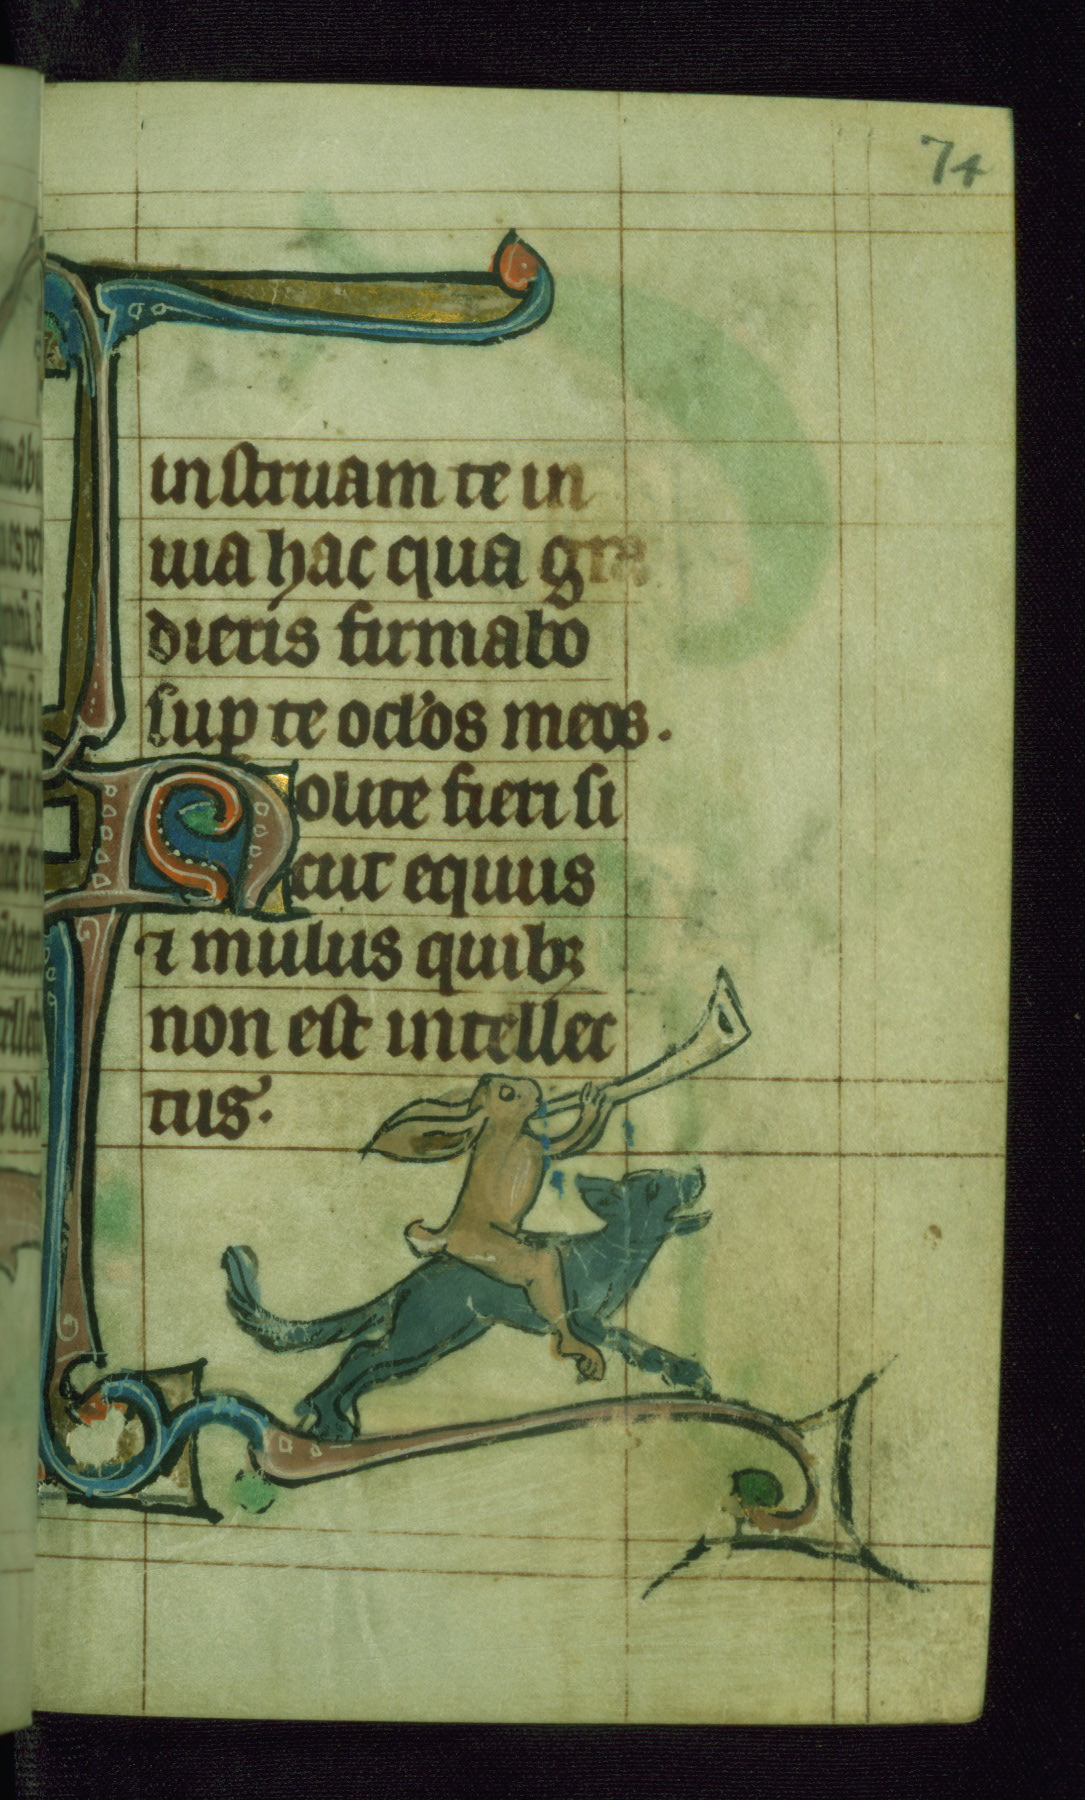 74
instruam te in
uia hac qua gra
dieris firmabo
sup te oclos meos.
Nolite fieri si
cut equus
⁊ mulus quibꝫ
non est intellec
tus.